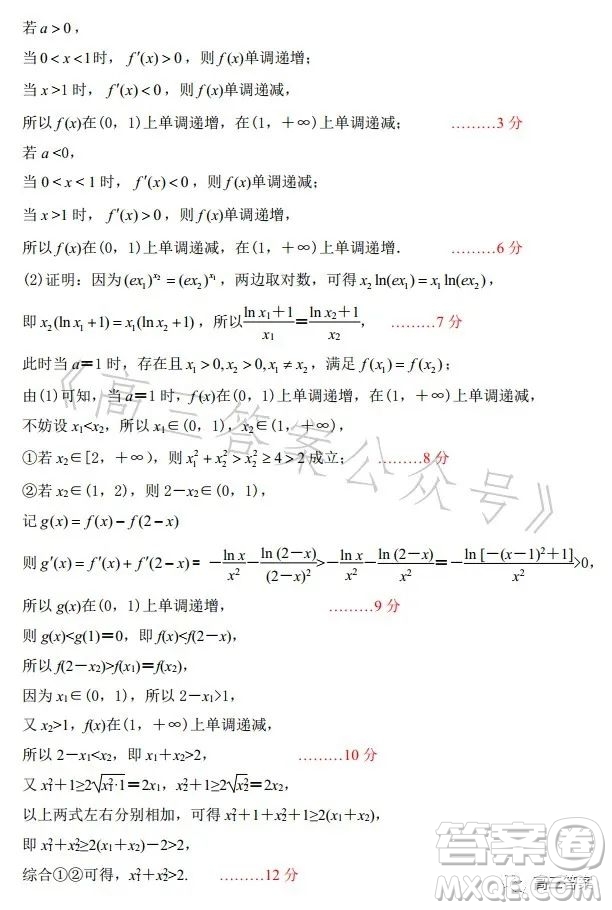 若 a＞0，
当 0＜x＜1时， f′(x)＞0，则 f (x)单调递增；
当 x＞1 时， f′(x)＜0，则 f(x)单调递减，
所以 f (x)在(0，1)上单调递增，在(1，＋∞)上单调递减； ………3 分
若 a <0，
当 0＜x＜1 时， f′(x)＜0，则 f(x)单调递减；
当 x＞1 时， f′(x)＞0，则 f(x)单调递增，
所以 f(x)在(0，1)上单调递减，在(1，＋∞)上单调递增． ………6 分
(2)证明：因为(ex₁)^{x₂}＝(ex₂)^{x₁}，两边取对数，可得 x₂ln(ex₁)＝x₁ln(ex₂)，
即 x₂(ln x₁＋1)＝x₁(ln x₂＋1)，所以(ln x₁＋1)/x₁＝(ln x₂＋1)/x₂， ………7 分
此时当 a＝1 时，存在且 x₁＞0, x₂＞0, x₁≠x₂，满足 f(x₁)＝f(x₂)；
由(1)可知，当 a＝1 时，f(x)在(0，1)上单调递增，在(1，＋∞)上单调递减，
不妨设 x₁<x₂，所以 x₁∈(0，1)，x₂∈(1，＋∞)，
①若 x₂∈[2，＋∞)，则 x₁²＋x₂²＞x₂²≥4＞2 成立； ………8 分
②若 x₂∈(1，2)，则 2－x₂∈(0，1)，
记 g(x)＝f(x)－f(2－x)
则 g′(x)＝f′(x)＋f′(2－x)＝－ln x/x²－ln (2－x)/(2－x)²>－ln x/x²－ln (2－x)/x²＝－ln [－(x－1)²＋1]/x²>0，
所以 g(x)在(0，1)上单调递增， ………9 分
则 g(x)<g(1)＝0，即 f(x)<f(2－x)，
所以 f(2－x₂)>f(x₁)＝f(x₂)，
因为 x₁∈(0，1)，所以 2－x₁>1，
又 x₂>1，f(x)在(1，＋∞)上单调递减，
所以 2－x₁<x₂，即 x₁＋x₂>2， ………10 分
又 x₁²＋1≥2√(x₁²·1)＝2x₁，x₂²＋1≥2√(x₂²)＝2x₂，
以上两式左右分别相加，可得 x₁²＋1＋x₂²＋1≥2(x₁＋x₂)，
即 x₁²＋x₂²≥2(x₁＋x₂)－2>2，
综合①②可得，x₁²＋x₂²>2. ………12 分
《高三答案公众号》
高三答案
答案圈
MXQE.COM